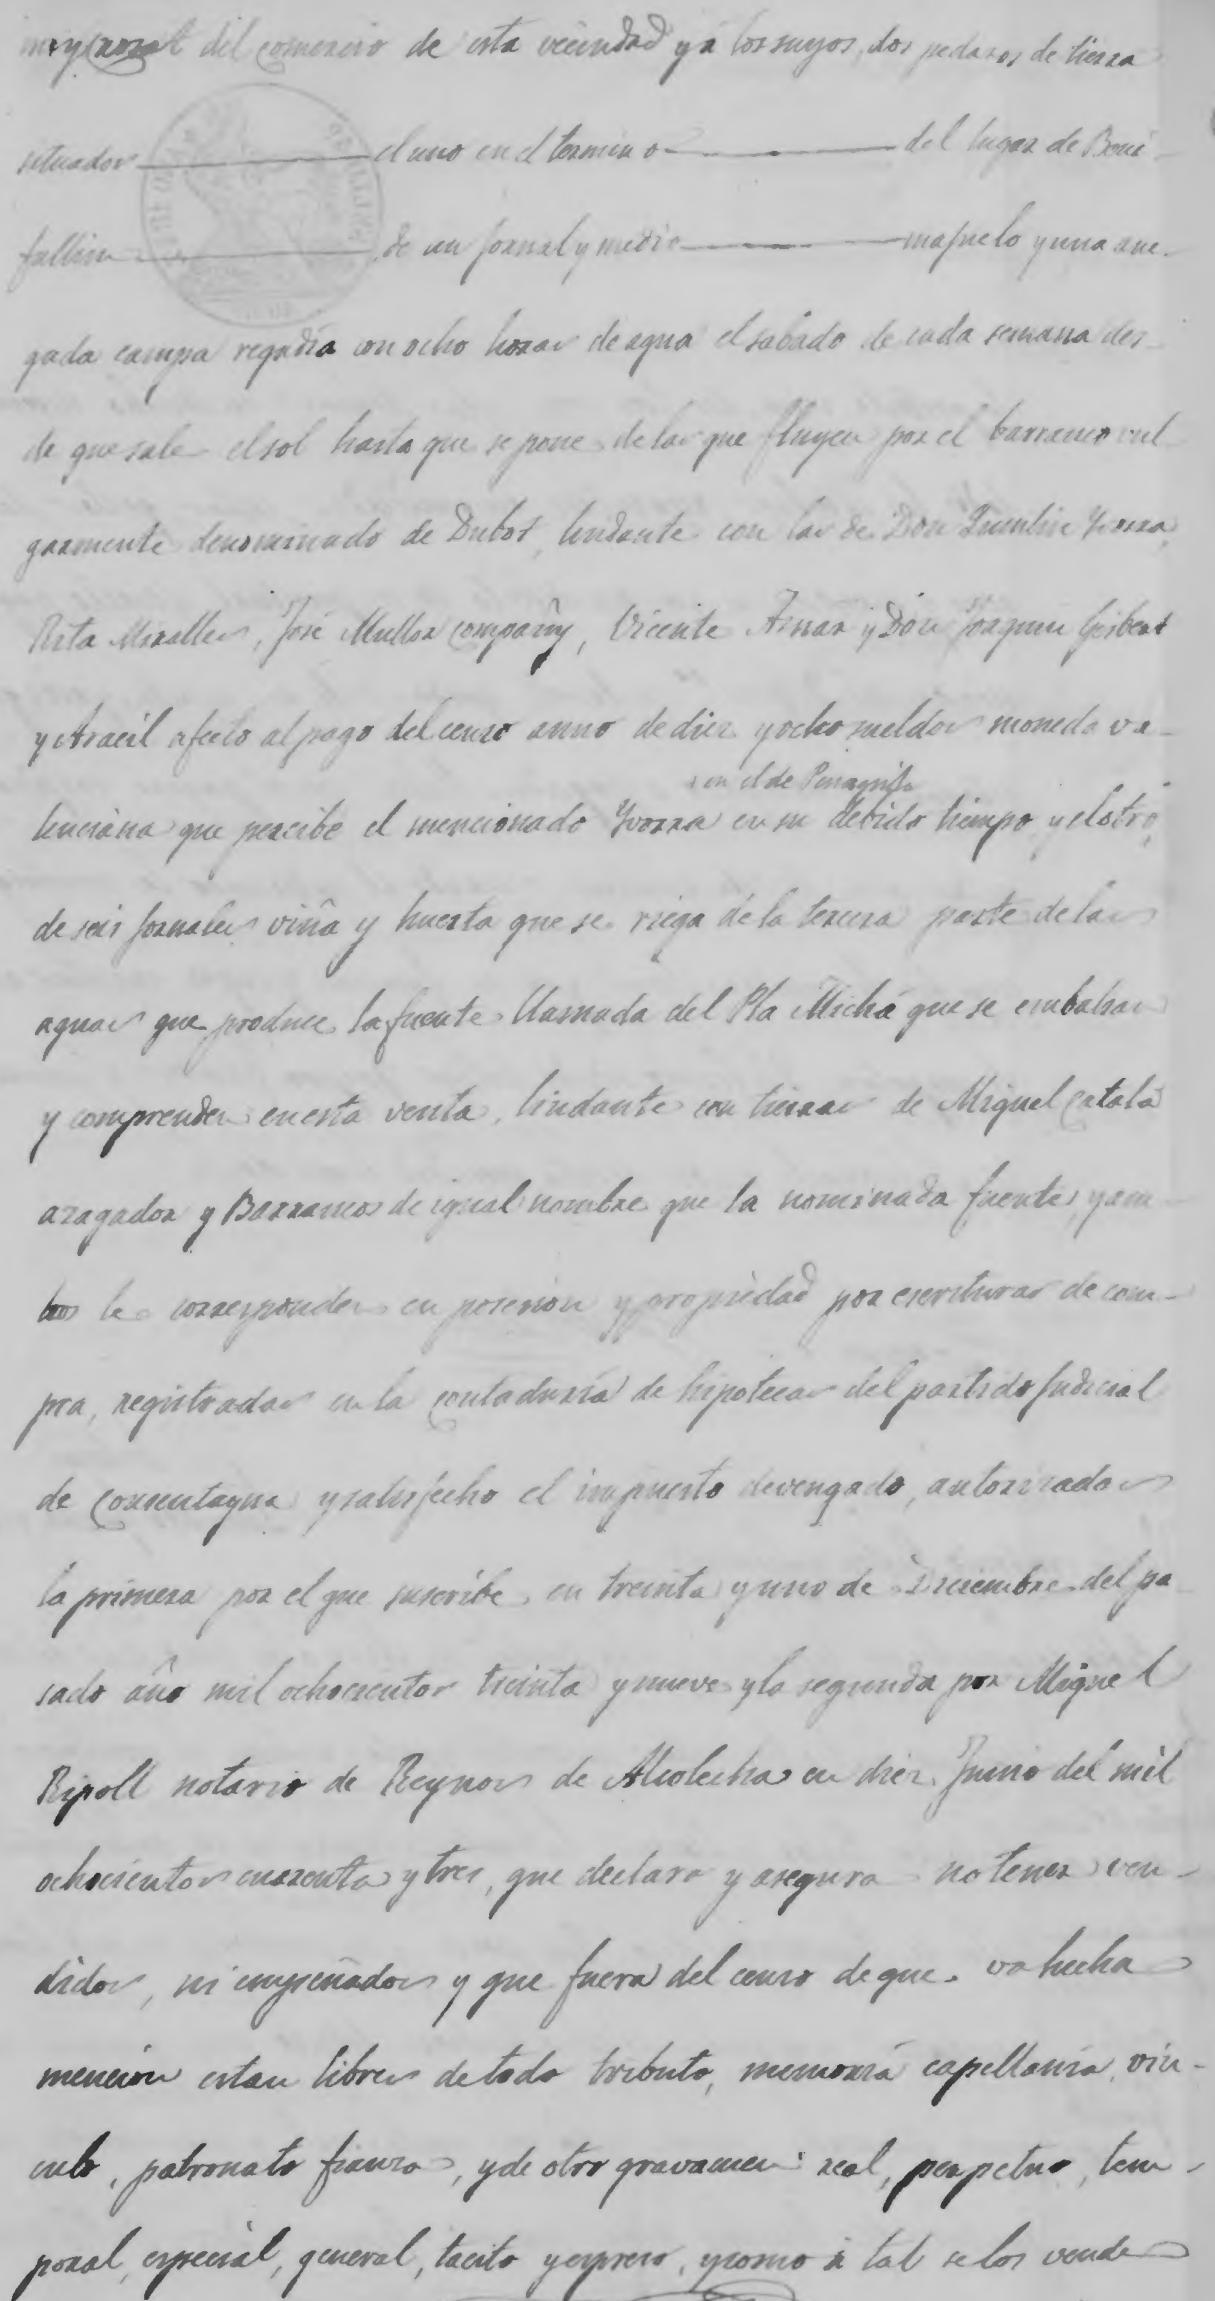 del comercio de esta vecindad y á los suyos, dos pedazos de tierra
situados el uno en el termino del lugar de Beni-
fallim de un jornal y medio majuelo y una ane-
gada campa regadía con ocho horas de agua el sabado de cada semana des-
de que sale el sol hasta que se pone de las que fluyen por el barranco vul
garmente denominado de Dubot, lindante con las de Don Quintin Yvorra,
Rita Miralles, José Mullor Compañy, Vicente Aznar y Don Joaquin Gisbert
y Aracil afecto al pago del censo annuo de diez y ocho sueldos moneda va-
en el de Penaguila
lenciana que percibe el mencionado Yvorra en su debido tiempo y el otro,
de seis jornales viña y huerta que se riega de la tercera parte de las
aguas que produce la fuente llamada del Pla Michá que se embalsan
y comprenden en esta venta, lindante con tierras de Miguel Catalá
azagador y Barrancos de igual nombre que la nominada fuente, y am-
bos le corresponden en posesion y propiedad por escrituras de com-
pra, registradas en la contaduría de hipotecas del partido judicial
de Concentayna y satisfecho el impuesto devengado, autorizadas
la primera por el que suscribe en treinta y uno de Diciembre del pa
sado año mil ochocientos treinta y nueve y la segunda por Miguel
Ripoll notario de Reynos de Alcolecha en diez Junio del mil
ochocientos cuarenta y tres, que declara y asegura no tener ven-
didos, ni empeñados y que fuera del censo de que va hecha
mencion estan libres de todo tributo, memoria capellanía, vin-
culo, patronato fianza, y de otro gravamen real, perpetuo, tem-
poral, especial, general, tacito y espreso, y como á tal se los vende